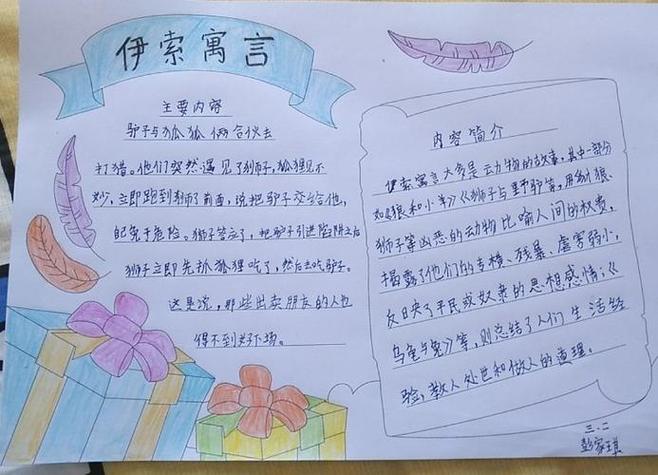 伊索寓言
主要内容
驴子与狐狐俩合伙去
打猎。他们突然遇见了狮子，狐狸见不
妙，立即跑到狮子前面，说把驴子交给他，
自己免于危险。狮子答应了，把驴子引进陷阱之后
狮子立即先抓狐狸吃了，然后去吃驴子。
这是说，那些出卖朋友的人也
得不到好下场。
内容简介
伊索寓言大多是动物的故事，其中一部分
如《狼和小羊》《狮子与野驴等，用豺狼、
狮子等凶恶的动物比喻人间的权贵，
揭露了他们的专横、残暴、虐害弱小，
反映了平民或奴隶的思想感情；《
乌龟与兔》等，则总结了人们生活经
验，教人处世和做人的道理。
三.二
彭家琪